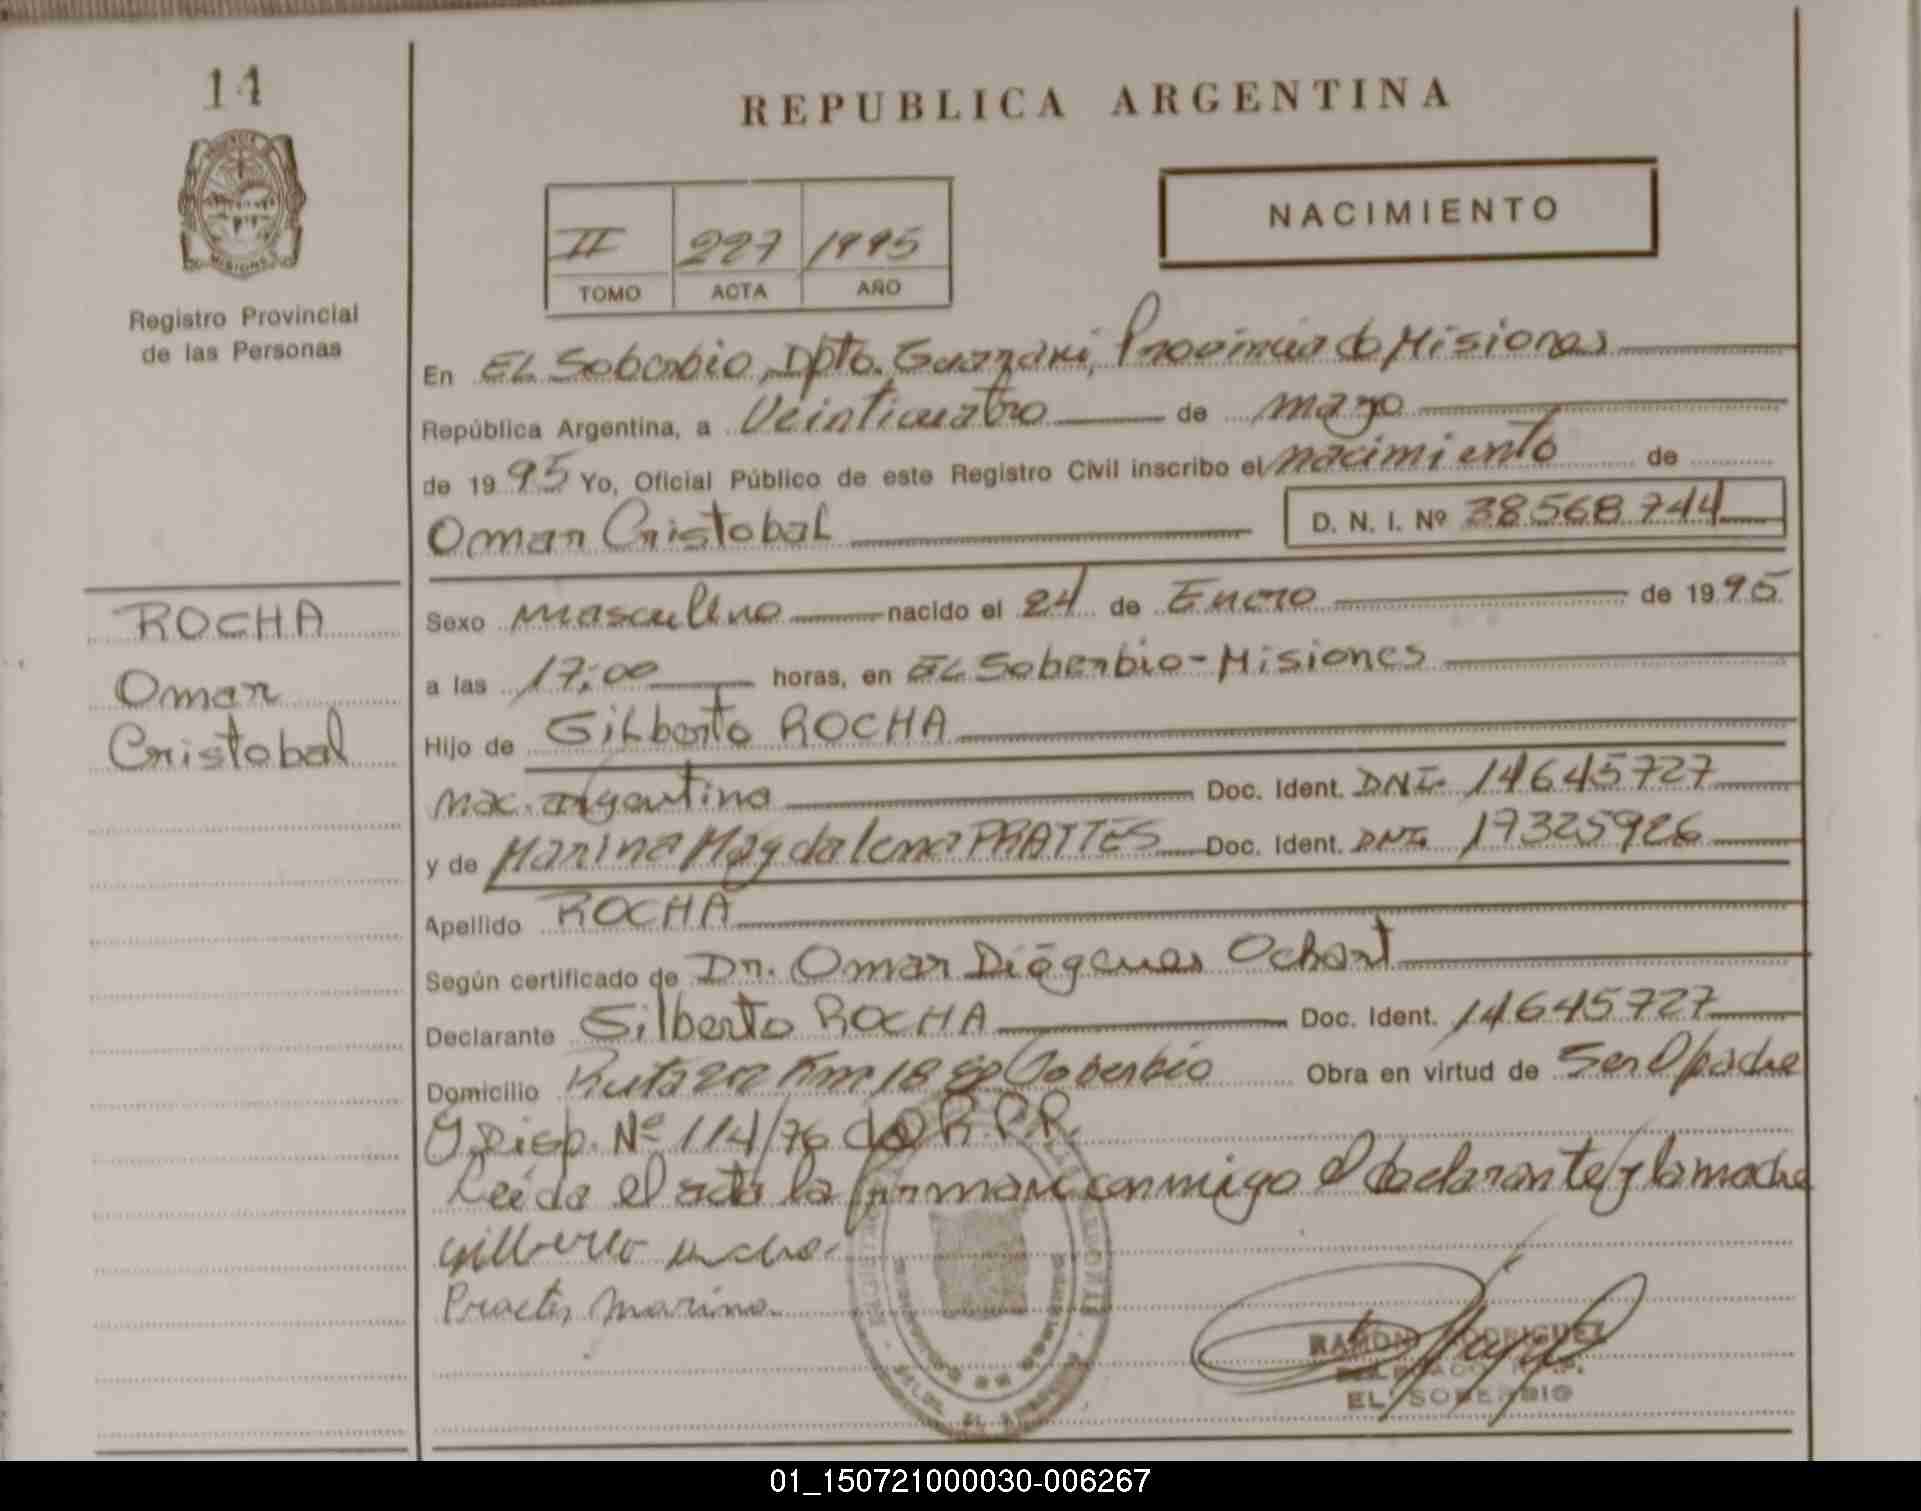 14
REPUBLICA ARGENTINA
NACIMIENTO
II 227 1995
TOMO ACTA AÑO
Registro Provincial
de las Personas
En EL Soberbio, Dpto. Guaraní, Provincia de Misiones
República Argentina, a Veinticuatro de mayo
de 1995 Yo, Oficial Público de este Registro Civil inscribo el nacimiento de
Omar Cristobal D. N. I. Nº 38568744
ROCHA
Omar
Cristobal
Sexo masculino nacido el 24 de Enero de 1995
a las 17:00 horas, en EL Soberbio-Misiones
Hijo de Gilberto ROCHA
nac. argentina Doc. Ident. DNI. 14645727
y de Marina Magdalena PRATTES Doc. Ident. DNI. 17325926
Apellido ROCHA
Según certificado de Dr. Omar Diógenes Ochart
Declarante Gilberto ROCHA Doc. Ident. 14645727
Domicilio Ruta Km 18 Soberbio Obra en virtud de Ser El padre
y Disp. Nº 114/76 del R.P.P.
Leída el acta la firman conmigo el declarante y la madre
Marina
RAMON RODRIGUEZ
EL SOBERBIO
01_150721000030-006267